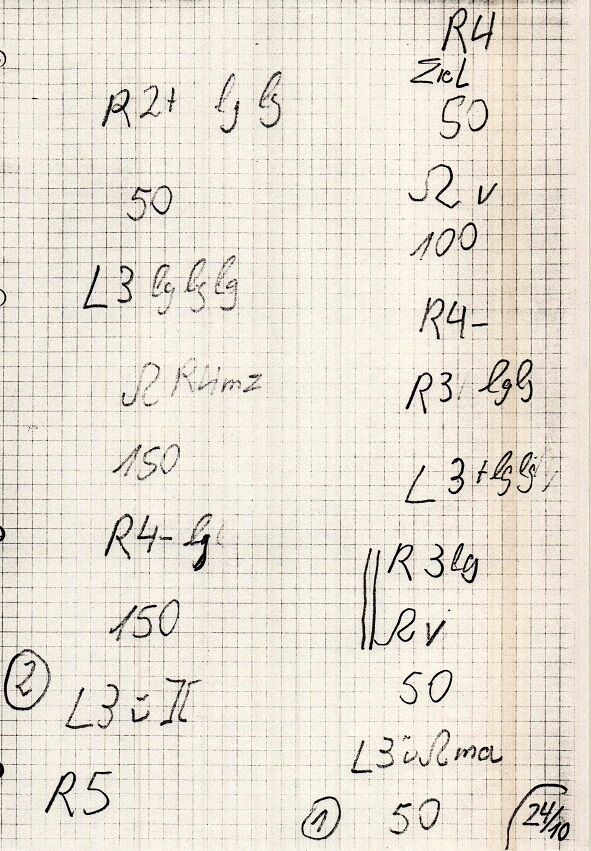 R2+ lg lg
50
L3 lg lg lg
Ω R4mz
150
R4- lg
150
② L3 ü
R5
R4
Ziel
50
Ω v
100
R4-
R3 lg lg
L3+ lg lg
R3 lg
Ω v
50
L3üΩma
① 50
24/10